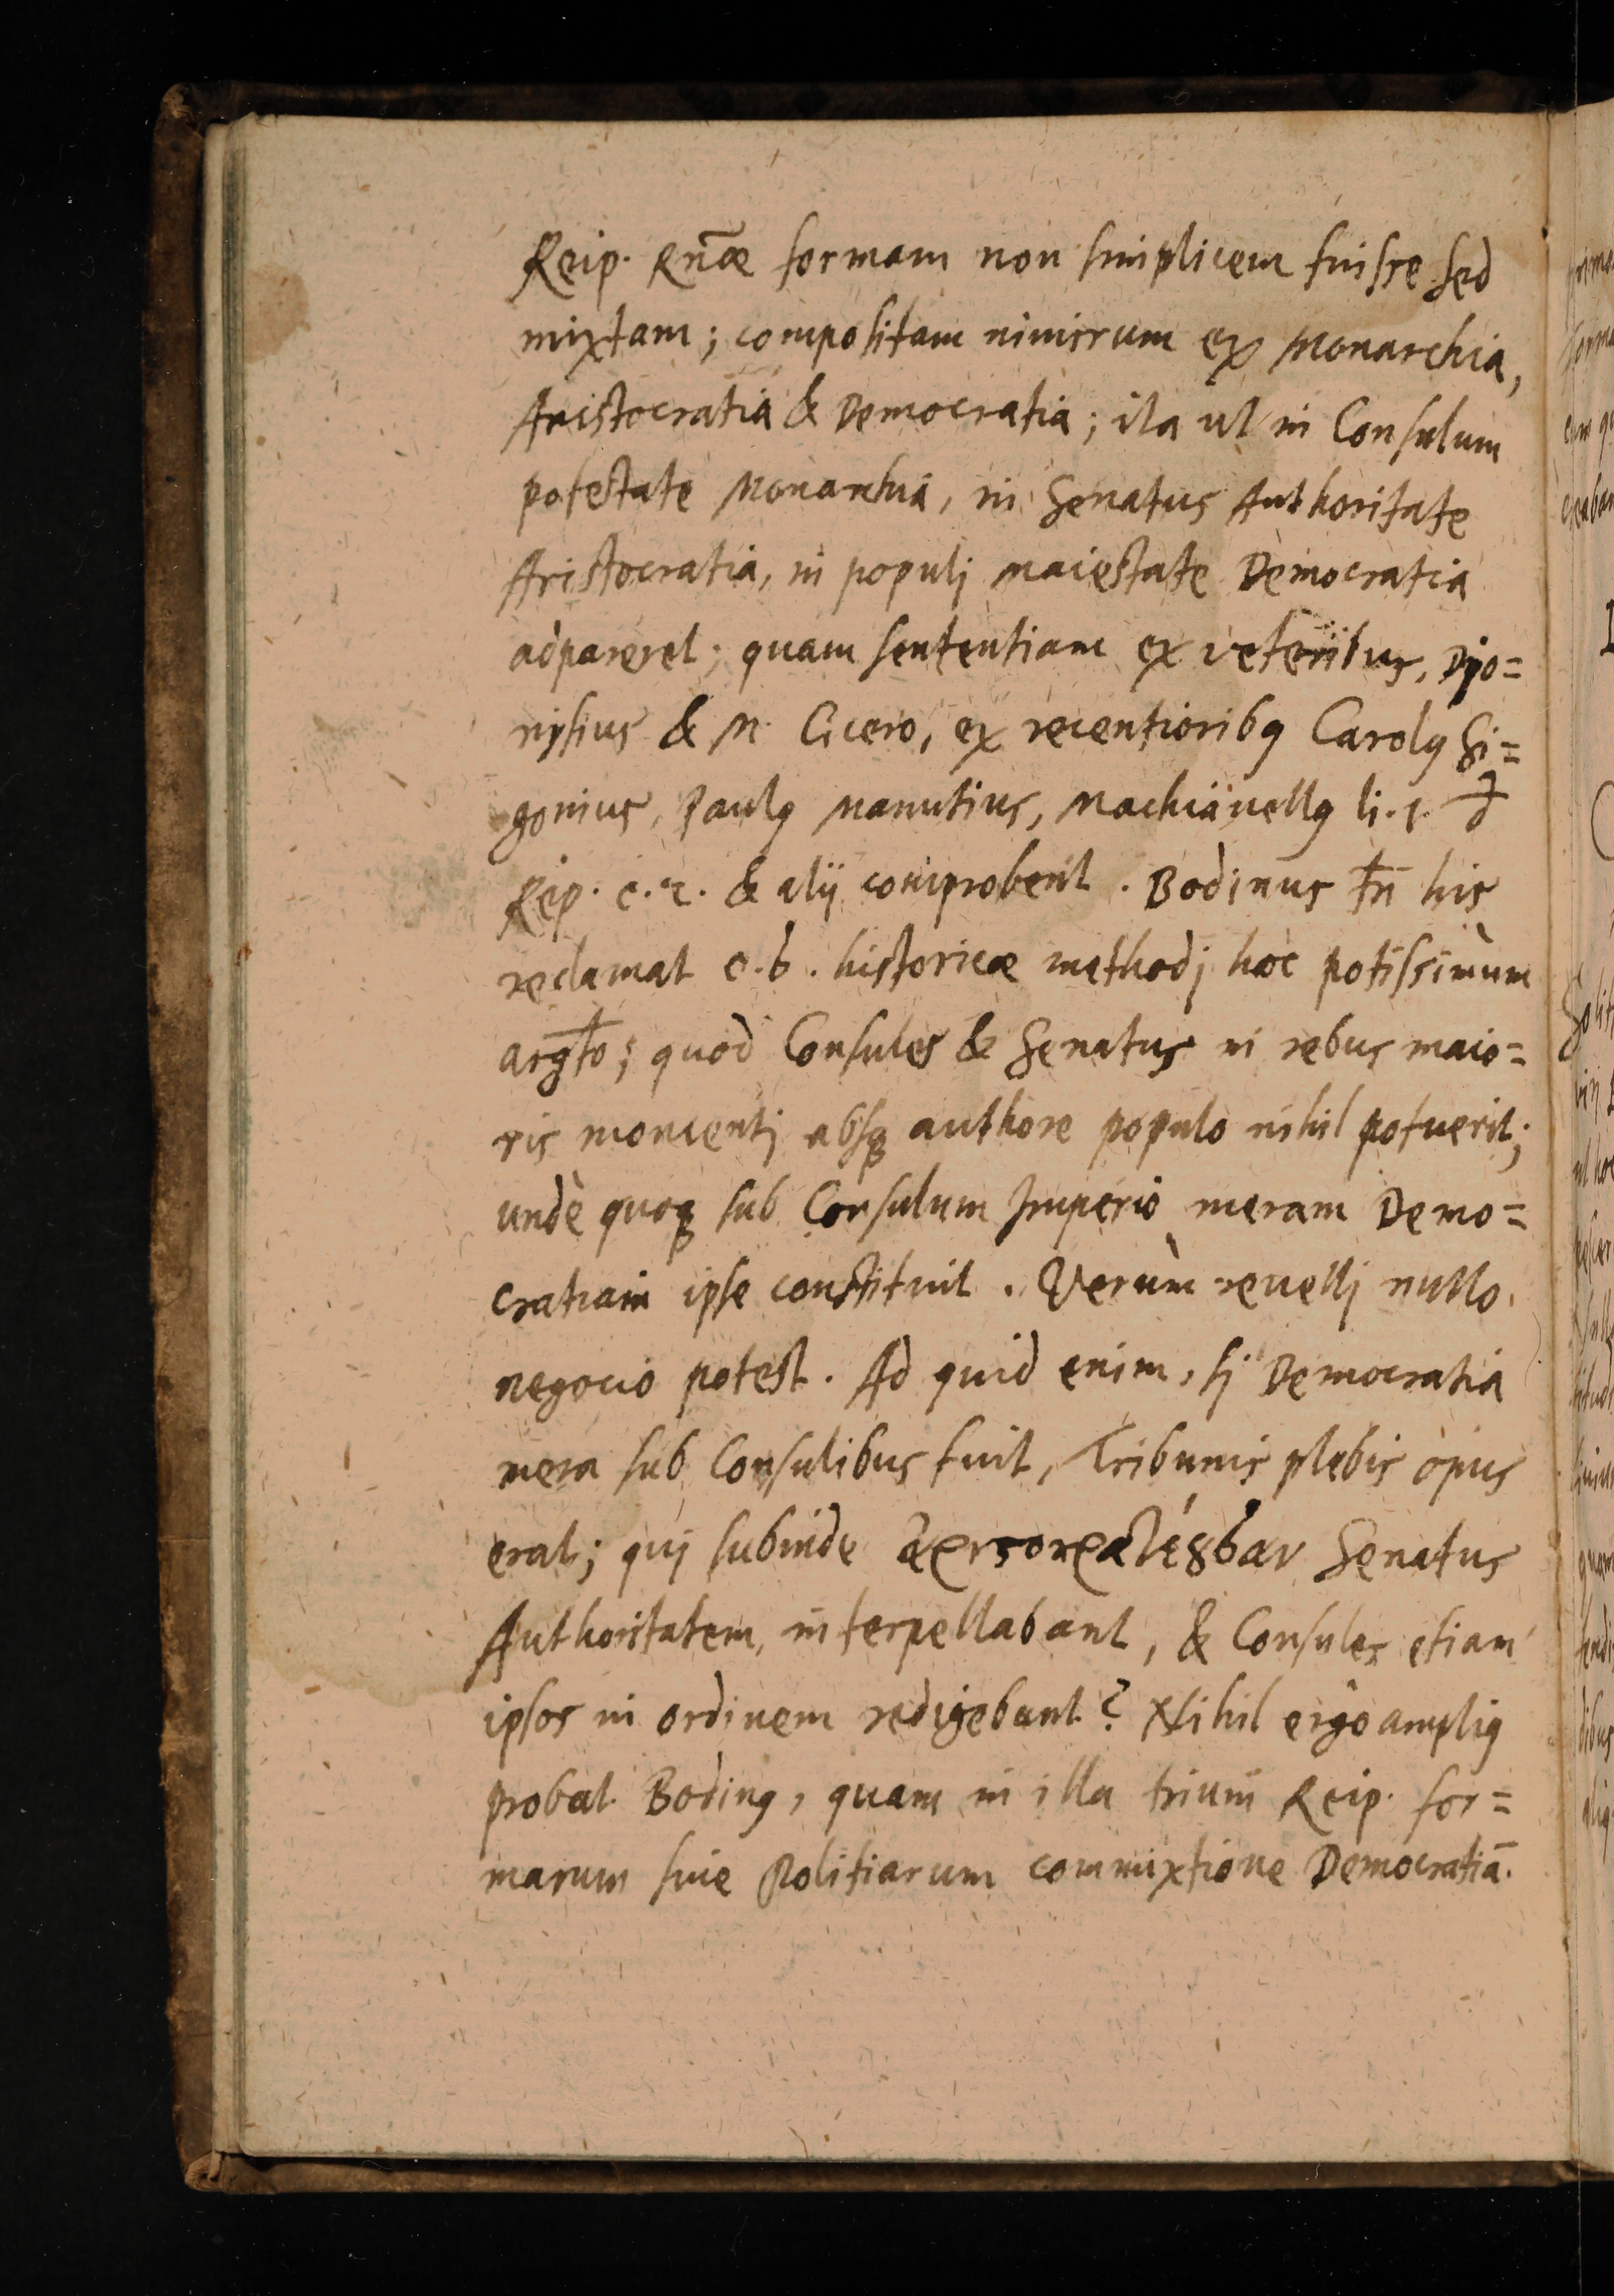 Reip. Rn̄æ formam non simplicem fuisse sed
mixtam; compositam nimirum ex Monarchia,
Aristocratia & Democratia; ita ut in Consulum
potestate Monarchia, in Senatus Authoritate
Aristocratia, in populj Maiestate Democratia
adpareret; quam sententiam ex veteribus, Dio=
nysius & M. Cicero, ex recentioribꝯ Carolꝯ Si=
gonius, Paulꝯ Manutius, Machiauellꝯ li. 1. d
Rep. c. 2. & alij comprobent. Bodinus tn̄ his
reclamat c. 6. historicæ methodj hoc potissimùm
arg̅to; quod Consules & Senatus in rebus maio=
ris momentj absqꝫ authore populo nihil potuerit;
undè quoqꝫ sub Consulum Imperio meram Demo=
cratiam ipse constituit. Verùm reuellj nullo
negocio potest. Ad quid enim, sj Democratia
mera sub Consulibus fuit, Tribunis plebis opus
erat; quj subinde Senatus
Authoritatem, interpellabant, & Consules etiam
ipsos in ordinem redigebant? Nihil ergò ampliꝯ
probat Bodinꝯ, quam in illa trium Reip. for=
marum siue Politiarum commixtione Democratiā.